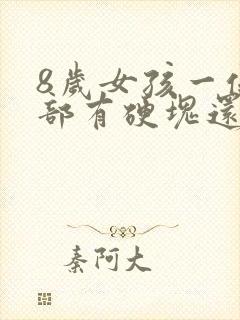 8歲女孩一
部有硬塊還
秦阿大